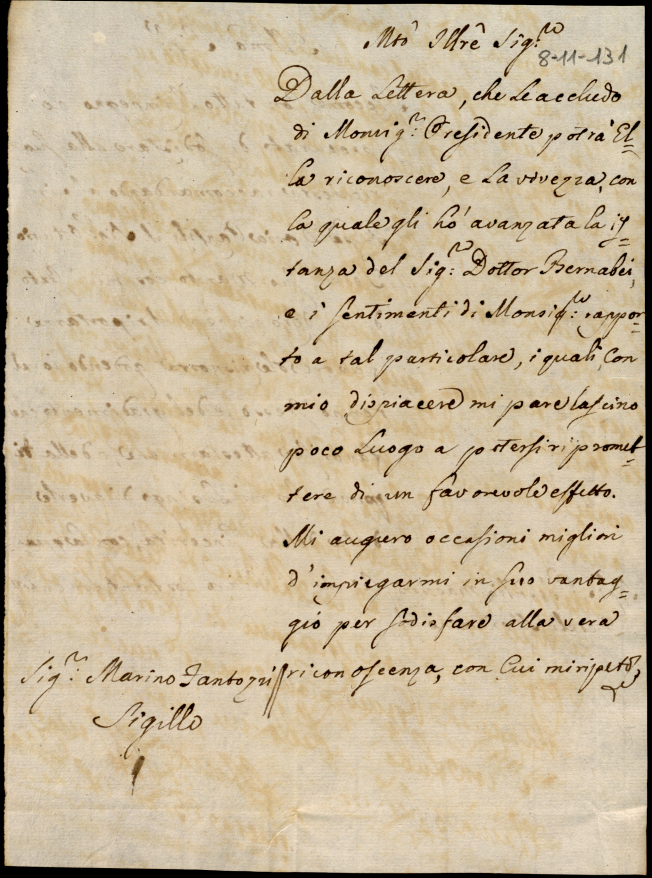 Mto Illre Sig.re
8-11-131
Dalla Lettera, che Le accludo
di Monsig.r Presidente potrà El=
la riconoscere, e la vivezza, con
la quale gli hò avanzata la is=
tanza del Sig.r Dottor Bernabei,
e i sentimenti di Monsig.re rappor=
to a tal particolare, i quali con
mio dispiacere mi pare lascino
poco Luogo a potersi ripromet=
tere di un favorevole effetto.
Mi auguro occasioni migliori
d'impiegarmi in suo vantag=
gio per sodisfare alla vera
riconoscenza, con cui mi ripeto,
Sig.r Marino Fantozzi
Sigillo